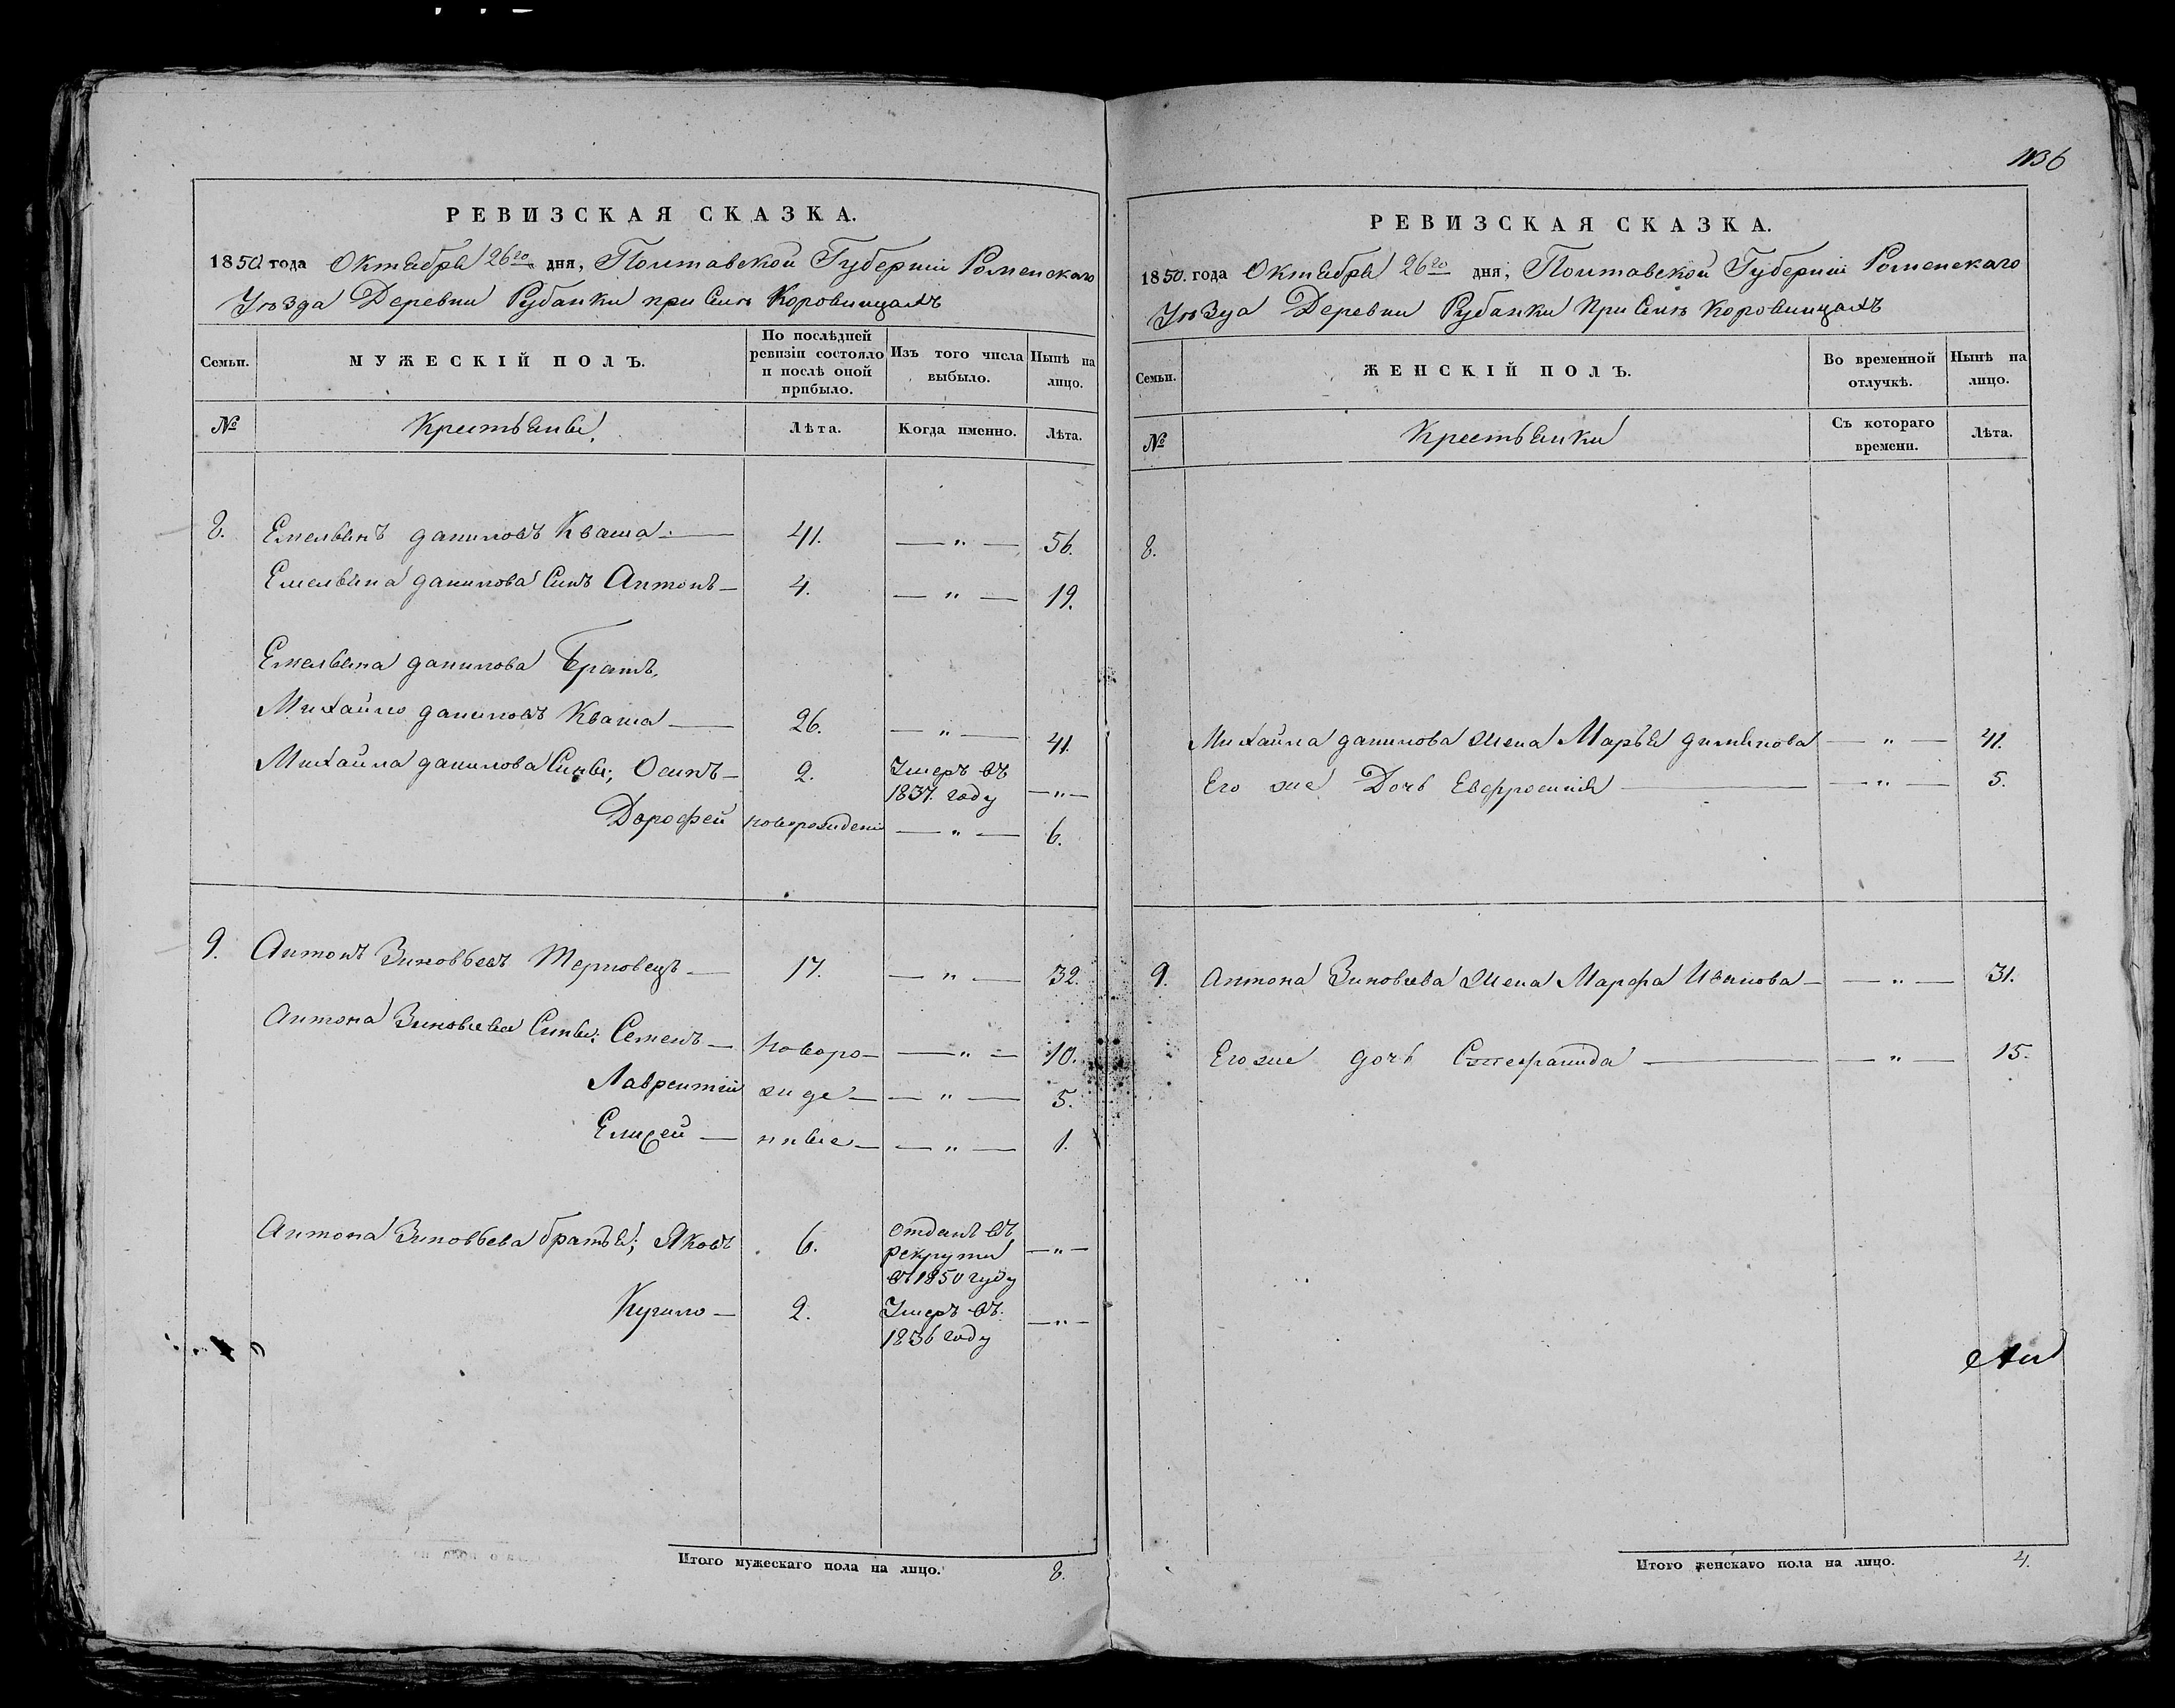 1136
РЕВИЗСКАЯ СКАЗКА.
1850 года Октября 26го дня, Полтавской Губерніи Роменскаго
Уѣзда Деревни Рубанки при Селѣ Коровинцахъ
Семьи.
МУЖЕСКІЙ ПОЛЪ.
По послѣдней ревизіи состояло и послѣ оной прибыло.
Изъ того числа выбыло.
Нынѣ на лицо.
№
Крестьяне
Лѣта.
Когда именно.
Лѣта.
8. Емельянъ Даниловъ Кваша 41. — " — 56.
Емельяна Данилова Синъ Антонъ 4. — " — 19.
Емельяна Данилова Братъ,
Михайло Даниловъ Кваша 26. — " — 41.
Михайла Данилова Сины; Осипъ 2. Умеръ въ 1837. году — " —
Дорофей новорожденій — " — 6.
9. Антонъ Зиновьевъ Терновецъ 17. — " — 32.
Антона Зиновьева Сины: Семенъ новоро — " — 10.
Лаврентій жде — " — 5.
Елисей нные — " — 1.
Антона Зиновьева братья; Яковъ 6. отданъ въ рекруты въ 1850 году — " —
Курило 2. Умеръ въ 1836 году — " —
Итого мужескаго пола на лицо. 8.
РЕВИЗСКАЯ СКАЗКА.
1850. года Октября 26го дня, Полтавской Губерніи Роменскаго
Уѣзда Деревни Рубанки при Селѣ Коровинцахъ
Семьи.
ЖЕНСКІЙ ПОЛЪ.
Во временной отлучкѣ.
Нынѣ на лицо.
№
Крестьянки
Съ котораго времени.
Лѣта.
8.
Михайла Данилова жена Марья Демянова — " — 41.
Его же Дочь Евфросинія — " — 5.
9. Антона Зиновьева жена Марфа Иванова — " — 31.
Его же дочь Стефанида — " — 15.
Итого женскаго пола на лицо. 4.